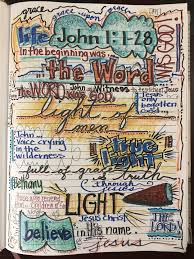 grace upon grace
life John 1:1-28
In the beginning was...
the Word
WAS GOD
The WORD was GOD
John
Witness
light of
men
Jesus
only
begotten
John...
Voice crying
in the
wilderness
true
light
full of grace & truth
Bethany
Through
Jesus
LIGHT
Jesus Christ
THE
LORD
believe
in this name
Jesus